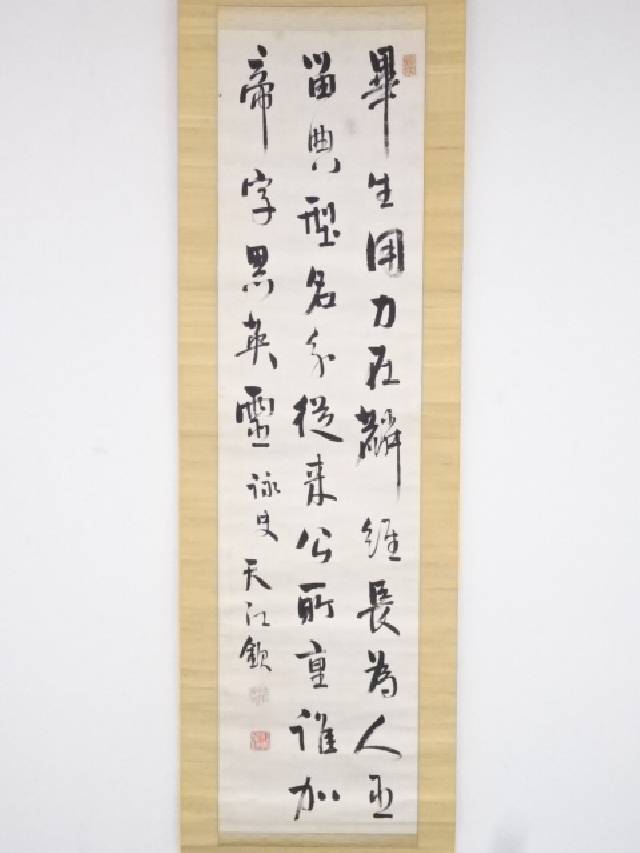 畢生用力在麟經長為人臣
留典型名分從来公所重誰加
帝字累英霊詠史天江欽